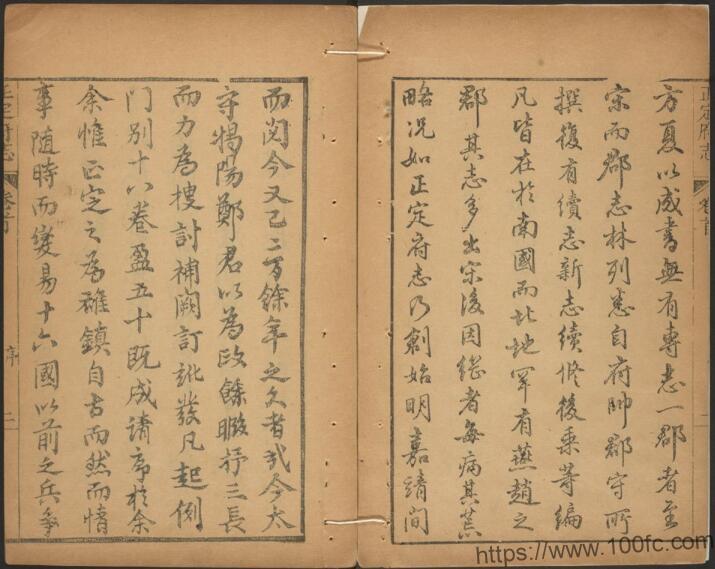 正定府志
卷首
方夏以成書無有專志一郡者至
宋而郡志林列悉自府帥郡守所
撰復有續志新志續修後乗等編
凡皆在於南國而北地罕有燕趙之
郡其志多出宋後因繼者每病其荒
略況如正定府志乃創始明嘉靖間
而閱今又已二百餘年之久者哉今太
守揭陽鄭君以為政餘暇抒三長
而力為搜討補闕訂訛發凡起例
門別十八卷盈五十既成請序於余
余惟正定之為雄鎮自古而然而情
事随時而變易十六國以前之兵爭
正定府志
卷首
序
二
https://www.100fc.com